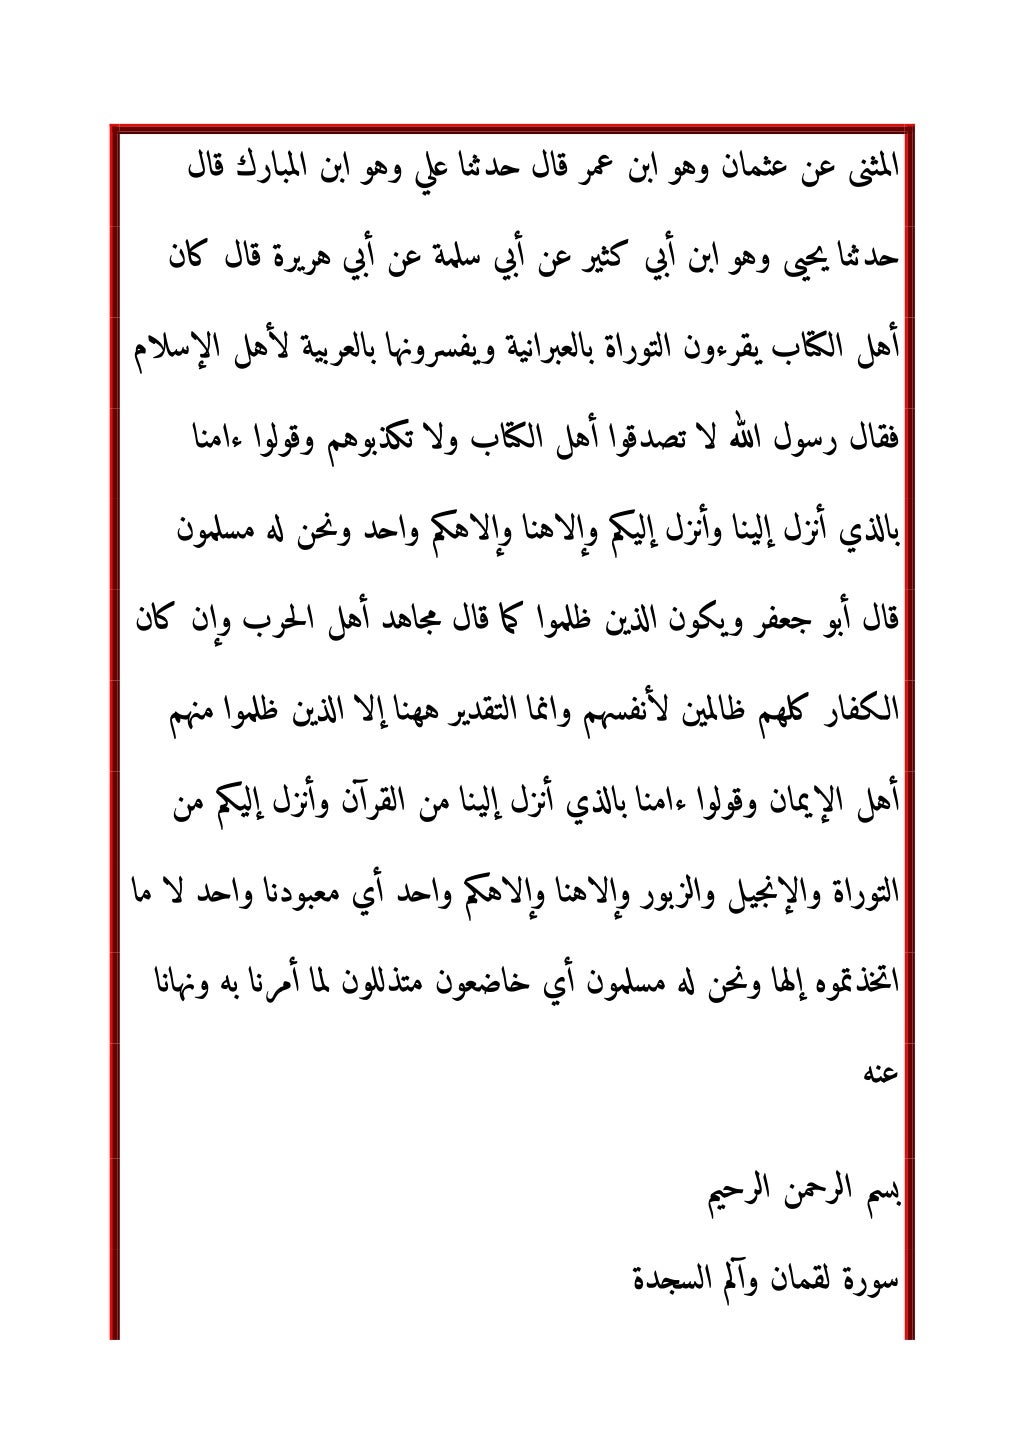 المثنى عن عثمان وهو ابن عمر قال حدثنا علي وهو ابن المبارك قال
حدثنا يحيى وهو ابن أبي كثير عن أبي سلمة عن أبي هريرة قال كان
أهل الكتاب يقرءون التوراة بالعبرانية ويفسرونها بالعربية لأهل الإسلام
فقال رسول الله لا تصدقوا أهل الكتاب ولا تكذبوهم وقولوا ءامنا
بالذي أنزل إلينا وأنزل إليكم وإلاهنا وإلاهكم واحد ونحن له مسلمون
قال أبو جعفر ويكون الذين ظلموا كما قال مجاهد أهل الحرب وإن كان
الكفار كلهم ظالمين لأنفسهم وانما التقدير ههنا إلا الذين ظلموا منهم
أهل الإيمان وقولوا ءامنا بالذي أنزل إلينا من القرآن وأنزل إليكم من
التوراة والإنجيل والزبور وإلاهنا وإلاهكم واحد أي معبودنا واحد لا ما
اتخذتموه إلها ونحن له مسلمون أي خاضعون متذللون لما أمرنا به ونهانا
عنه
بسم الرحمن الرحيم
سورة لقمان وآلم السجدة